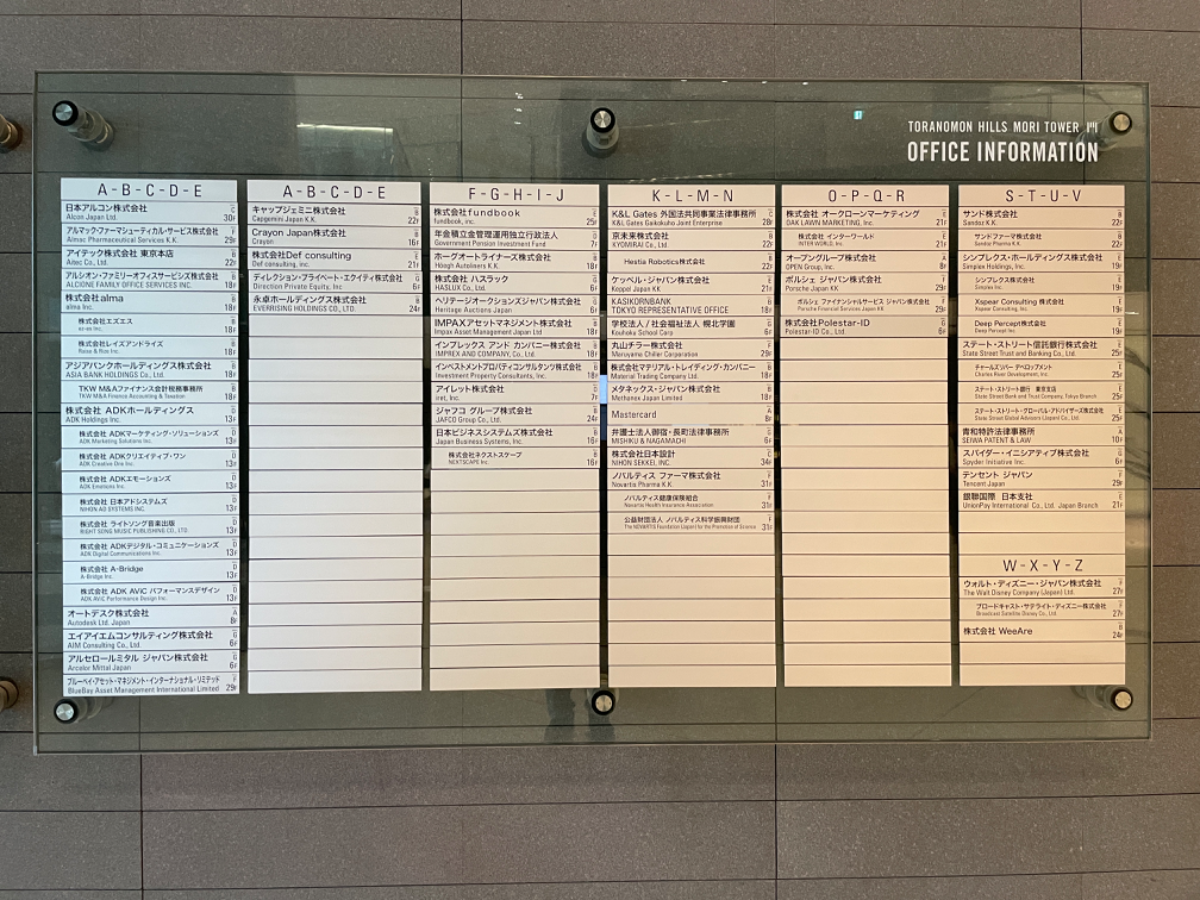 TORANOMON HILLS MORI TOWER
OFFICE INFORMATION
A-B-C-D-E
日本アルコン株式会社
Alcon Japan Ltd. 30F
アルマック・ファーマシューティカル・サービス株式会社
Almac Pharmaceutical Services K.K. 29F
アイテック株式会社 東京本店
Aitec Co., Ltd. 22F
アルシオン・ファミリーオフィスサービシズ株式会社
ALCIONE FAMILY OFFICE SERVICES INC. 18F
株式会社alma
alma Inc. 18F
株式会社エズエス
18F
株式会社レイズアンドライズ
Raise & Rise Inc. 18F
アジアバンクホールディングス株式会社
ASIA BANK HOLDINGS Co., Ltd. 18F
TKW M&Aファイナンス会計税務事務所
TKW M&A Finance Accounting & Taxation 18F
株式会社 ADKホールディングス
ADK Holdings Inc. 13F
株式会社 ADKマーケティング・ソリューションズ
ADK Marketing Solutions Inc. 13F
株式会社 ADKクリエイティブ・ワン
ADK Creative One Inc. 13F
株式会社 ADKエモーションズ
ADK Emotions Inc. 13F
株式会社 日本アドシステムズ
NIHON AD SYSTEMS INC. 13F
株式会社 ライトソング音楽出版
RIGHT SONG MUSIC PUBLISHING CO., LTD. 13F
株式会社 ADKデジタル・コミュニケーションズ
ADK Digital Communications Inc. 13F
株式会社 A-Bridge
A-Bridge Inc. 13F
株式会社 ADK AVIC パフォーマンスデザイン
ADK AVIC Performance Design Inc. 13F
オートデスク株式会社
Autodesk Ltd. Japan 8F
エイアイエムコンサルティング株式会社
AIM Consulting Co., Ltd. 6F
アルセロールミタル ジャパン株式会社
Arcelor Mittal Japan 6F
ブルーベイ・アセット・マネジメント・インターナショナル・リミテッド
BlueBay Asset Management International Limited 29F
A-B-C-D-E
キャップジェミニ株式会社
Capgemini Japan K.K. 22F
Crayon Japan株式会社
Crayon 16F
株式会社Def consulting
Def consulting, inc. 21F
ディレクション・プライベート・エクイティ株式会社
Direction Private Equity, Inc 6F
永卓ホールディングス株式会社
EVERRISING HOLDINGS CO., LTD. 24F
F-G-H-I-J
株式会社fundbook
fundbook, inc. 25F
年金積立金管理運用独立行政法人
Government Pension Investment Fund 7F
ホーグオートライナーズ株式会社
Höegh Autoliners K.K. 18F
株式会社 ハスラック
HASLUX Co., Ltd. 6F
ヘリテージオークションズジャパン株式会社
Heritage Auctions Japan 6F
IMPAXアセットマネジメント株式会社
Impax Asset Management Japan Ltd 18F
インプレックス アンド カンパニー株式会社
IMPREX AND COMPANY, Co., Ltd. 18F
インベストメントプロパティコンサルタンツ株式会社
Investment Property Consultants, Inc. 18F
アイレット株式会社
iret, Inc. 7F
ジャフコ グループ株式会社
JAFCO Group Co., Ltd. 24F
日本ビジネスシステムズ株式会社
Japan Business Systems, Inc. 16F
株式会社ネクストスケープ
NEXTSCAPE Inc. 16F
K-L-M-N
K&L Gates 外国法共同事業法律事務所
K&L Gates Gaikokuho Joint Enterprise 28F
京未来株式会社
KYOMIRAI Co., Ltd. 22F
Hestia Robotics株式会社
22F
ケッペル・ジャパン株式会社
Keppel Japan KK 21F
KASIKORNBANK
TOKYO REPRESENTATIVE OFFICE 18F
学校法人/社会福祉法人 幌北学園
Kouhoku School Corp 6F
丸山チラー株式会社
Maruyama Chiller Corporation 29F
株式会社マテリアル・トレイディング・カンパニー
Material Trading Company Ltd. 18F
メタネックス・ジャパン株式会社
Methanex Japan Limited 18F
Mastercard 8F
弁護士法人御宿・長町法律事務所
MISHIKU & NAGAMACHI 6F
株式会社日本設計
NIHON SEKKEI, INC. 34F
ノバルティス ファーマ株式会社
Novartis Pharma K.K. 31F
ノバルティス健康保険組合
Novartis Health Insurance Association 31F
公益財団法人 ノバルティス科学振興財団
The NOVARTIS Foundation (Japan) for the Promotion of Science 31F
O-P-Q-R
株式会社 オークローンマーケティング
OAK LAWN MARKETING, Inc. 21F
株式会社 インターワールド
INTER WORLD, Inc. 21F
オープングループ株式会社
OPEN Group, Inc. 8F
ポルシェ ジャパン株式会社
Porsche Japan KK 29F
ポルシェ ファイナンシャルサービス ジャパン株式会社
Porsche Financial Services Japan KK 29F
株式会社Polestar-ID
Polestar-ID Co., Ltd. 6F
S-T-U-V
サンド株式会社
Sandoz K.K. 22F
サンドファーマ株式会社
Sandoz Pharma K.K. 22F
シンプレクス・ホールディングス株式会社
Simplex Holdings, Inc. 19F
シンプレクス株式会社
Simplex Inc. 19F
Xspear Consulting 株式会社
Xspear Consulting, Inc. 19F
Deep Percept株式会社
Deep Percept Inc. 19F
ステート・ストリート信託銀行株式会社
State Street Trust and Banking Co., Ltd. 25F
チャールズリバー デベロップメント
Charles River Development, Inc. 25F
ステート・ストリート銀行 東京支店
State Street Bank and Trust Company, Tokyo Branch 25F
ステート・ストリート・グローバル・アドバイザーズ株式会社
State Street Global Advisors (Japan) Co., Ltd. 25F
青和特許法律事務所
SEIWA PATENT & LAW 10F
スパイダー・イニシアティブ株式会社
Spyder Initiative Inc. 6F
テンセント ジャパン
Tencent Japan 29F
銀聯国際 日本支社
UnionPay International Co., Ltd. Japan Branch 21F
W-X-Y-Z
ウォルト・ディズニー・ジャパン株式会社
The Walt Disney Company (Japan) Ltd. 27F
ブロードキャスト・サテライト・ディズニー株式会社
Broadcast Satellite Disney Co., Ltd. 27F
株式会社 WeeAre
24F